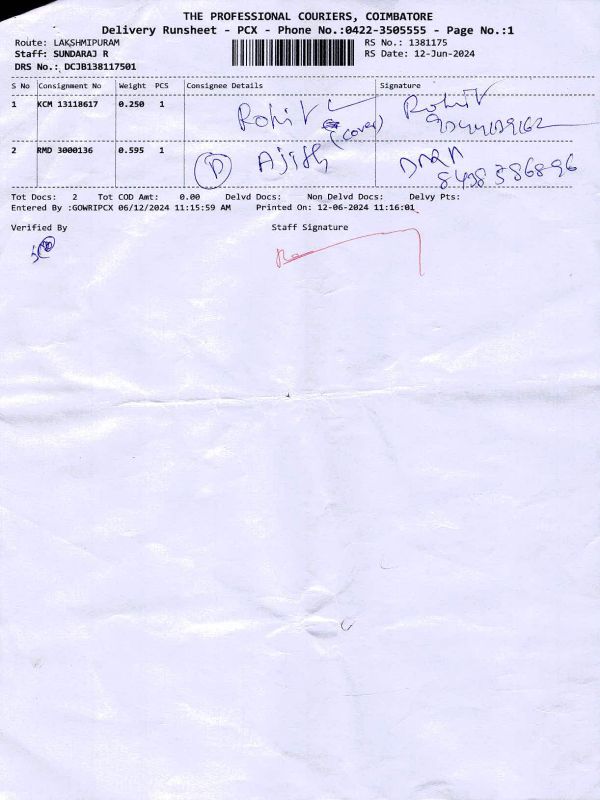 THE PROFESSIONAL COURIERS, COIMBATORE
Delivery Runsheet - PCX - Phone No.:0422-3505555 - Page No.:1
Route: LAKSHMIPURAM RS No.: 1381175
Staff: SUNDARAJ R RS Date: 12-Jun-2024
DRS No.: DCJB138117501
S No Consignment No Weight PCS Consignee Details Signature
1 KCM 13118617 0.250 1 Rohit Rohit
(cover)
2 RMD 3000136 0.595 1 D Ajith
8498386896
Tot Docs: 2 Tot COD Amt: 0.00 Delvd Docs: Non Delvd Docs: Delvy Pts:
Entered By :GOWRIPCX 06/12/2024 11:15:59 AM Printed On: 12-06-2024 11:16:01
Verified By Staff Signature